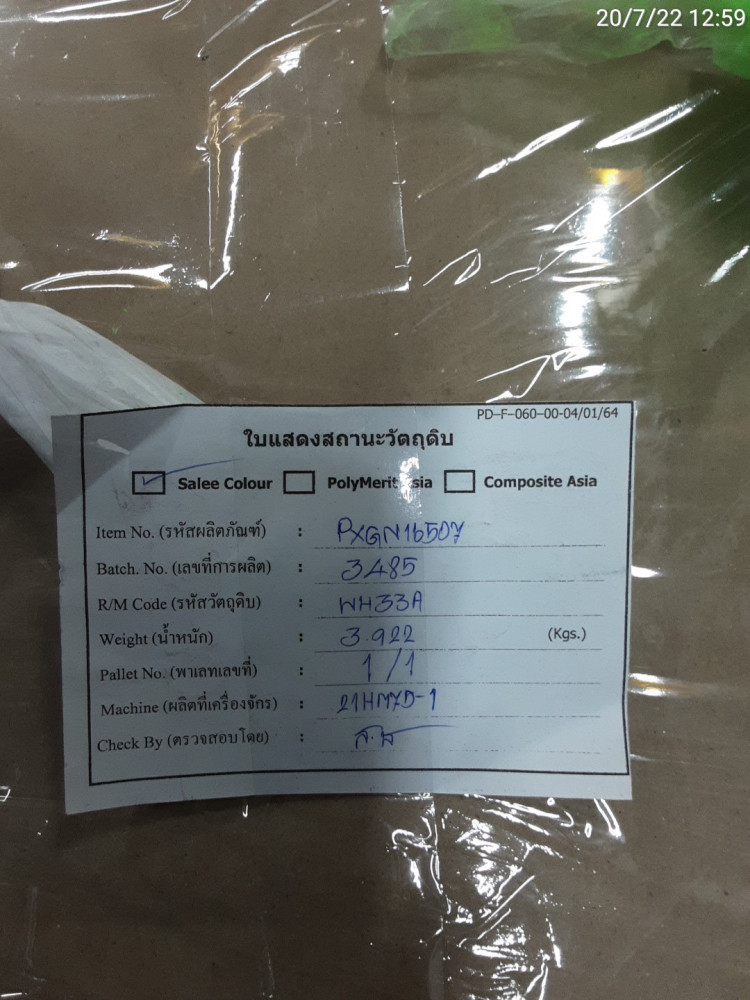 20/7/22 12:59
PD-F-060-00-04/01/64
ใบแสดงสถานะวัตถุดิบ
Salee Colour PolyMerit Asia Composite Asia
Item No. (รหัสผลิตภัณฑ์) : PXGN16507
Batch. No. (เลขที่การผลิต) : 3485
R/M Code (รหัสวัตถุดิบ) : WH33A
Weight (น้ำหนัก) : 3.922 (Kgs.)
Pallet No. (พาเลทเลขที่) : 1/1
Machine (ผลิตที่เครื่องจักร) : 21HM7D-1
Check By (ตรวจสอบโดย) :